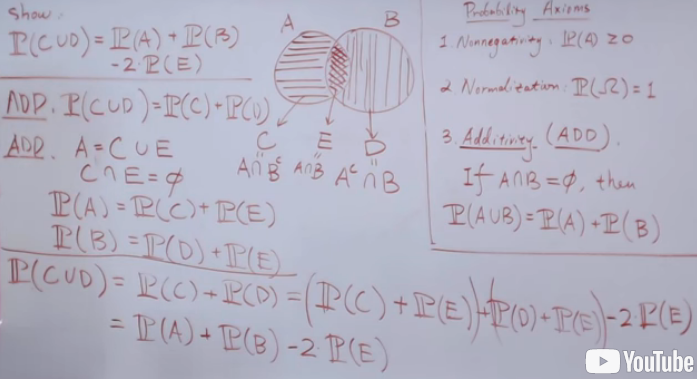 Show:
ℙ(C∪D) = ℙ(A) + ℙ(B)
-2·ℙ(E)
ADD. ℙ(C∪D) = ℙ(C) + ℙ(D)
ADD. A = C∪E
C∩E = ∅
ℙ(A) = ℙ(C) + ℙ(E)
ℙ(B) = ℙ(D) + ℙ(E)
A B
C E D
= = =
A∩Bᶜ A∩B Aᶜ∩B
Probability Axioms
1. Nonnegativity: ℙ(A) ≥ 0
2 Normalization: ℙ(Ω) = 1
3. Additivity (ADD).
If A∩B = ∅, then
ℙ(A∪B) = ℙ(A) + ℙ(B)
ℙ(C∪D) = ℙ(C) + ℙ(D) = (ℙ(C) + ℙ(E)) + (ℙ(D) + ℙ(E)) - 2·ℙ(E)
= ℙ(A) + ℙ(B) - 2·ℙ(E)
YouTube